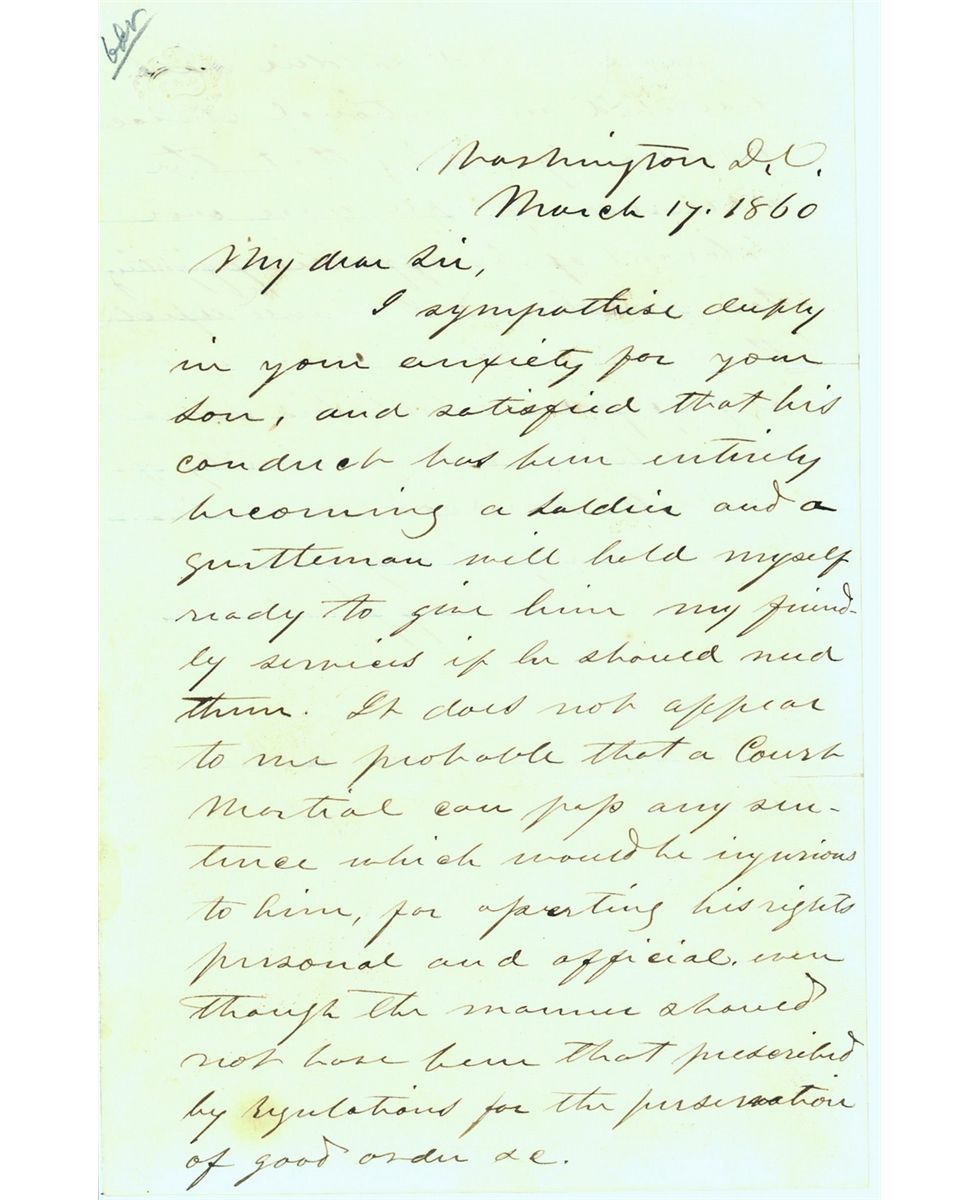 Washington D.C.
March 17. 1860
My dear Sir,
I sympathise deeply
in your anxiety for your
son, and satisfied that his
conduct has been entirely
becoming a soldier and a
gentleman will hold myself
ready to give him my friend-
ly services if he should need
them. It does not appear
to me probable that a Court
Martial can pass any sen-
tence which would be injurious
to him, for asserting his rights
personal and official. even
though the manner should
not have been that prescribed
by regulations for the preservation
of good order &c.